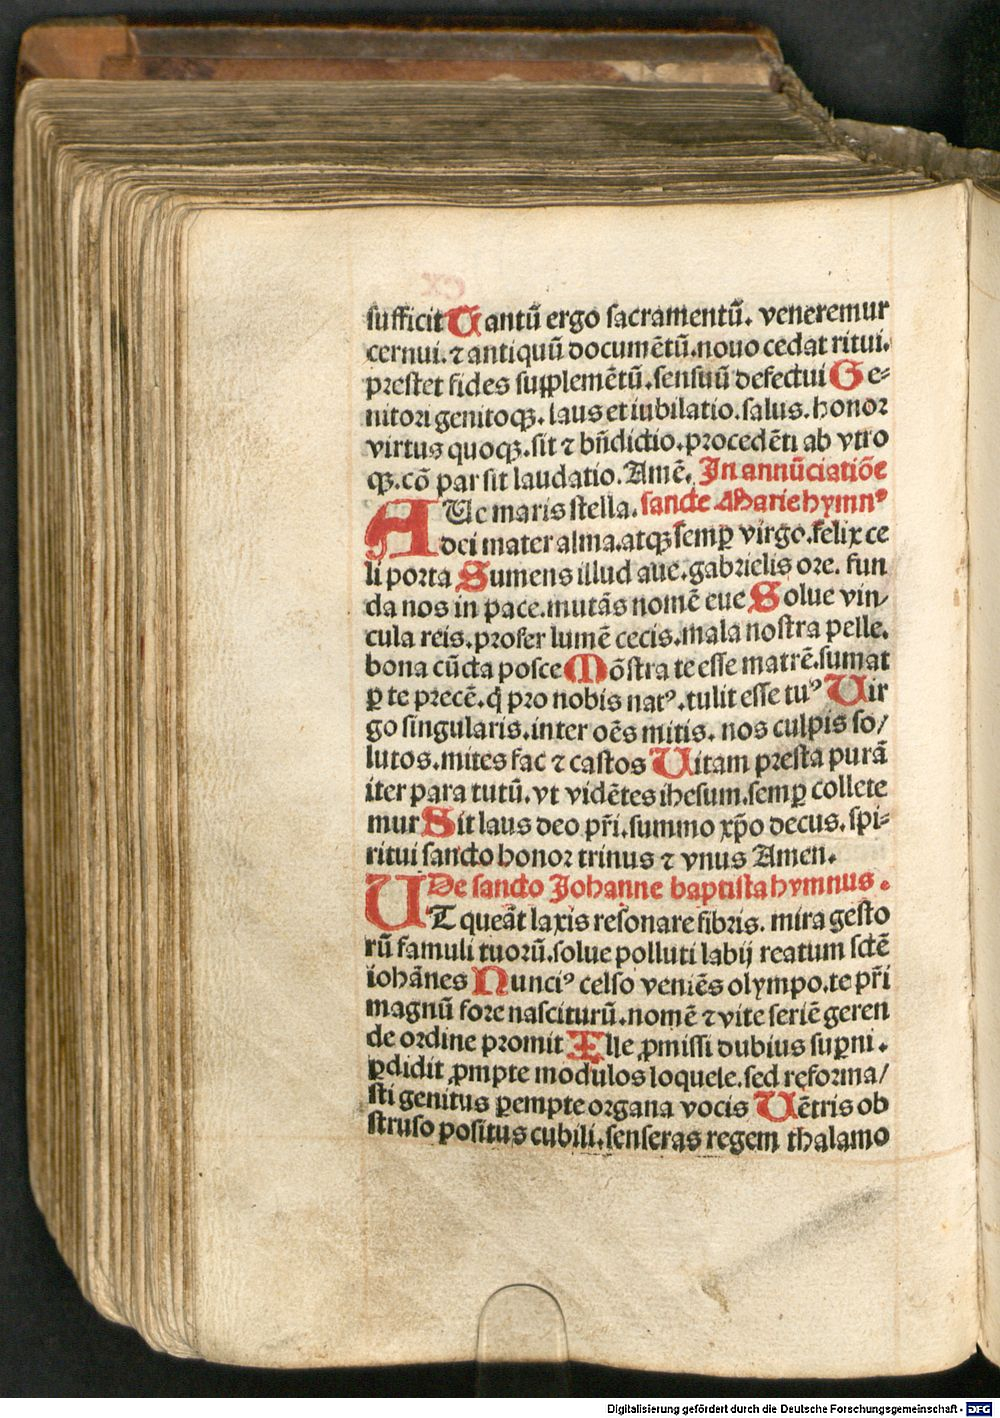 sufficit Tantū ergo sacramentū. veneremur
cernui. ⁊ antiquū documētū. nouo cedat ritui.
prestet fides supplemētū. sensuū defectui Ge-
nitori genitoqꝫ. laus et iubilatio. salus. honor
virtus quoqꝫ. sit ⁊ bn̄dictio. procedēti ab vtro
qꝫ. cō par sit laudatio. Amē. In annūciatiōe
AUe maris stella. sancte Marie hymnꝰ
dei mater alma. atqꝫ semꝑ virgo. felix ce
li porta Sumens illud aue. gabrielis ore. fun
da nos in pace. mutās nomē eue Solue vin/
cula reis. profer lumē cecis. mala nostra pelle.
bona cūcta posce Mōstra te esse matrē. sumat
ꝑ te precē. q̄ pro nobis natꝰ. tulit esse tuꝰ Uir
go singularis. inter oēs mitis. nos culpis so/
lutos. mites fac ⁊ castos Uitam presta purā
iter para tutū. vt vidētes ihesum. semꝑ collete
mur Sit laus deo pr̄i. summo xp̄o decus. spi-
ritui sancto honor trinus ⁊ vnus Amen.
De sancto Johanne baptista hymnus.
UT queāt laxis resonare fibris. mira gesto
rū famuli tuorū. solue polluti labij reatum sctē
iohānes Nunciꝰ celso veniēs olympo. te pr̄i
magnū fore nasciturū. nomē ⁊ vite seriē geren
de ordine promit Ille ꝓmissi dubius suꝑni.
ꝑdidit ꝓmpte modulos loquele. sed reforma/
sti genitus ꝑempte organa vocis Uētris ob
struso positus cubili. senseras regem thalamo
Digitalisierung gefördert durch die Deutsche Forschungsgemeinschaft - DFG